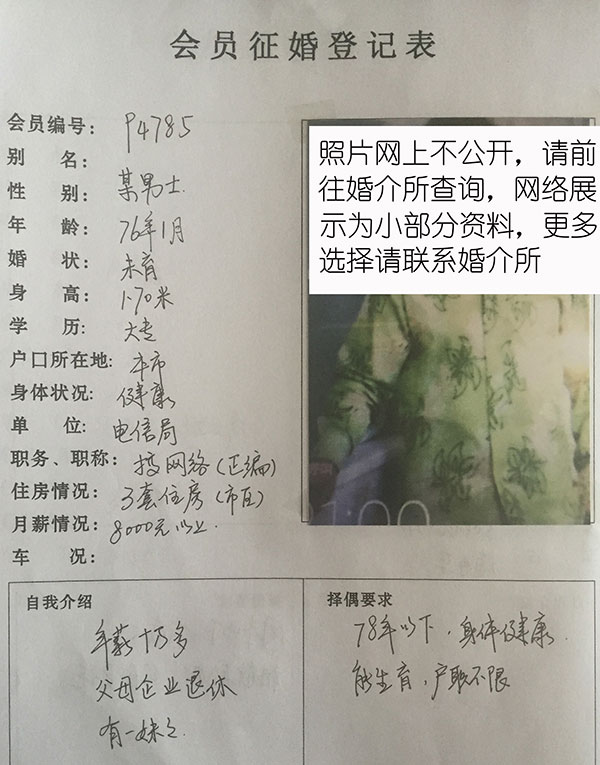 会员征婚登记表
会员编号： P4785
别 名：
性 别： 某男士
年 龄： 76年1月
婚 状： 未育
身 高： 1.70米
学 历： 大专
户口所在地： 本市
身体状况： 健康
单 位： 电信局
职务、职称： 搞网络（正编）
住房情况： 3套住房（市区）
月薪情况： 8000元以上.
车 况：
照片网上不公开，请前
往婚介所查询，网络展
示为小部分资料，更多
选择请联系婚介所
自我介绍
年薪十万多
父母企业退休
有一妹
择偶要求
78年以下，身体健康.
能生育，户职不限